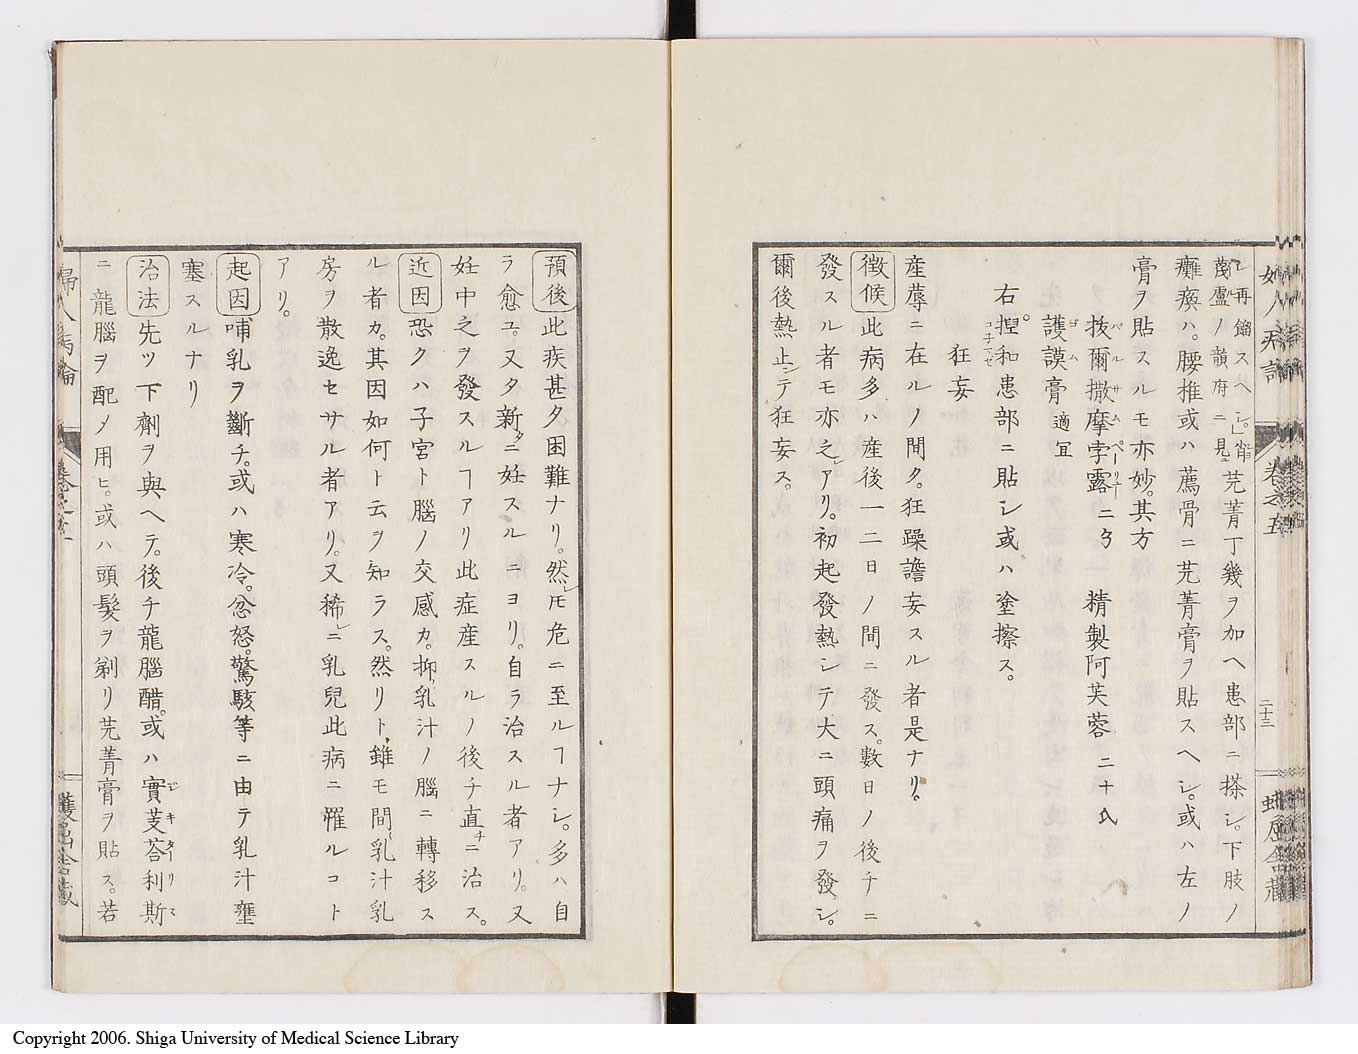 シ再餾スヘシ。」⿰
蔑盧ノ韻府ニ見ユ
芫菁丁幾ヲ加ヘ患部ニ搽シ。下肢ノ
癱瘓ハ。腰椎或ハ薦骨ニ芫菁膏ヲ貼スヘシ。或ハ左ノ
膏ヲ貼スルモ亦妙。其方
拔爾撒摩孛露 二ゟ 精製阿芙蓉 二十氏
護謨膏 適冝
右。揑和患部ニ貼シ或ハ塗擦ス。
狂妄
産蓐ニ在ルノ間タ。狂躁譫妄スル者是ナリ。
徴候 此病多ハ産後一二日ノ間ニ發ス。數日ノ後チニ
發スル者モ亦之レアリ。初起發熱シテ大ニ頭痛ヲ發シ。
爾後熱止シテ狂妄ス。
二十三
卷之五
預後 此疾甚タ困難ナリ。然レ𪜈危ニ至ルヿナシ。多ハ自
ラ愈ユ。又タ新タニ妊スルニヨリ。自ラ治スル者アリ。又
妊中之ヲ發スルヿアリ此症産スルノ後チ直チニ治ス。
近因 恐クハ子宮ト腦ノ交感カ。抑乳汁ノ腦ニ轉移ス
ル者カ。其因如何ト云ヲ知ラス。然リト雖モ間〻乳汁乳
房ヲ散逸セサル者アリ。又稀レニ乳兒此病ニ罹ルコト
アリ。
起因 哺乳ヲ斷チ。或ハ寒冷。忿怒。驚駭等ニ由テ乳汁壅
塞スルナリ
治法 先ツ下劑ヲ與ヘテ。後チ龍腦醋。或ハ實芰荅利斯
ニ龍腦ヲ配メ用ヒ。或ハ頭髮ヲ剃リ芫菁膏ヲ貼ス。若
Copyright 2006. Shiga University of Medical Science Library